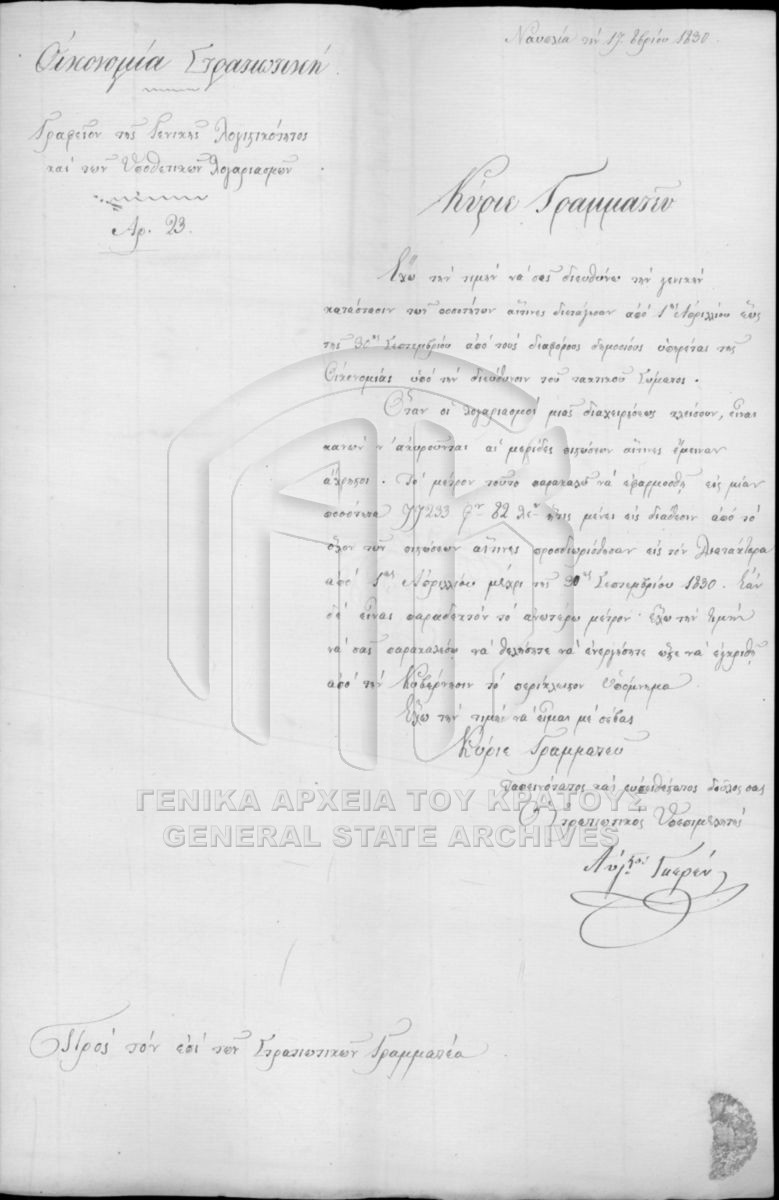 Ναυπλία τῇ 17. 8βρίου 1830.
Οἰκονομία Στρατιωτική.
Γραφεῖον τῆς Γενικῆς Λογιστικότητος
καὶ τῶν Ὑποθετικῶν Λογαριασμῶν.
Ἀρ. 23.
Κύριε Γραμματεῦ
Ἔχω τὴν τιμὴν νὰ σᾶς διευθύνω τὴν γενικὴν
κατάστασιν τῶν ποσοτήτων αἵτινες διετάγησαν ἀπὸ 1ης Ἀπριλλίου ἕως
τῆς 30ης Σεπτεμβρίου ἀπὸ τοὺς διαφόρους δημοσίους ὑπηρέτας τῆς
Οἰκονομίας ὑπὸ τὴν διεύθυνσιν τοῦ τακτικοῦ Σώματος.
Ὅταν οἱ λογαριασμοὶ μιᾶς διαχειρίσεως κλείσουν, εἶναι
κανὼν ν' ἀκυροῦνται αἱ μερίδες πιστώσεων αἵτινες ἔμειναν
ἄχρηστοι. Τὸ μέτρον τοῦτο παρακαλῶ νὰ ἐφαρμοσθῇ εἰς μίαν
ποσότητα 77233 φ. 82 λε. ἥτις μένει εἰς διάθεσιν ἀπὸ τὸ
ὅλον τῶν πιστώσεων αἵτινες προσδιωρίσθησαν εἰς τὸν Διατάκτορα
ἀπὸ 1ης Ἀπριλλίου μέχρι τῆς 30ης Σεπτεμβρίου 1830. Ἐὰν
δὲ εἶναι παραδεκτὸν τὸ ἀνωτέρω μέτρον ἔχω τὴν τιμὴν
νὰ σᾶς παρακαλέσω νὰ θελήσητε νὰ ἐνεργήσητε ὥστε νὰ ἐγκριθῇ
ἀπὸ τὴν Κυβέρνησιν τὸ περίκλειστον Ὑπόμνημα.
Ἔχω τὴν τιμὴν νὰ εἶμαι μὲ σέβας
Κύριε Γραμματεῦ
ταπεινότατος καὶ εὐπειθέστατος δοῦλος σας
Ὁ Στρατιωτικὸς Ὑποεπιμελητής
ΓΕΝΙΚΑ ΑΡΧΕΙΑ ΤΟΥ ΚΡΑΤΟΥΣ
GENERAL STATE ARCHIVES
Πρὸς τὸν ἐπὶ τῶν Στρατιωτικῶν Γραμματέα